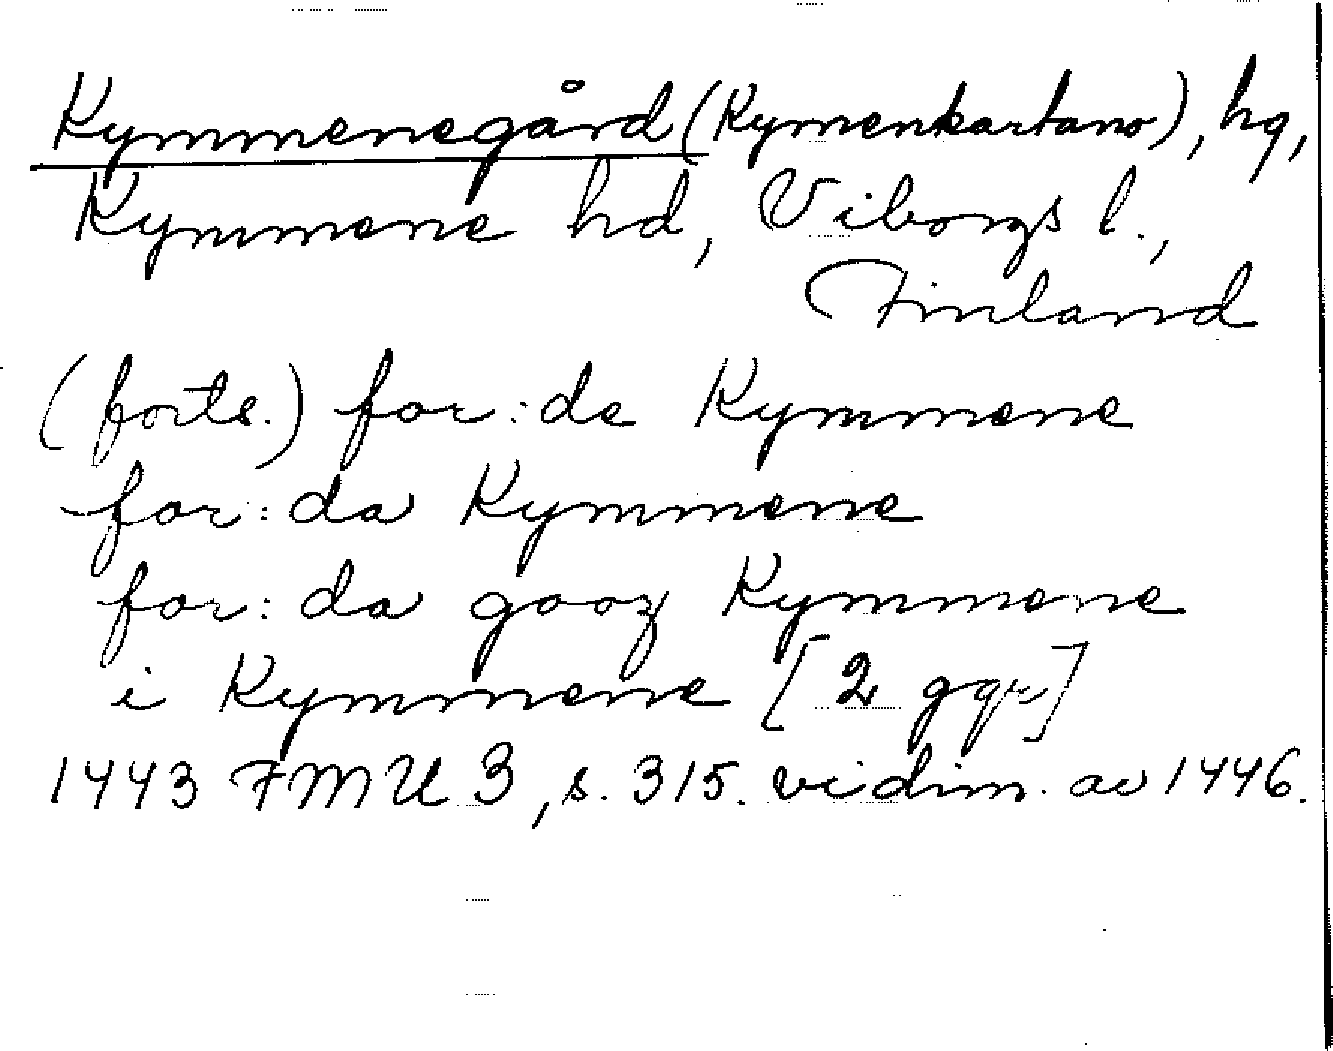 Kymmenegård (Kymenkartano), hg,
Kymmene hd, Viborgs l.,
Finland
(forts.) for: de Kymmene
for: da Kymmene
for: da gooz Kymmene
i Kymmene [2 ggr]
1443 FMU 3, s. 315. vidim. av 1446.